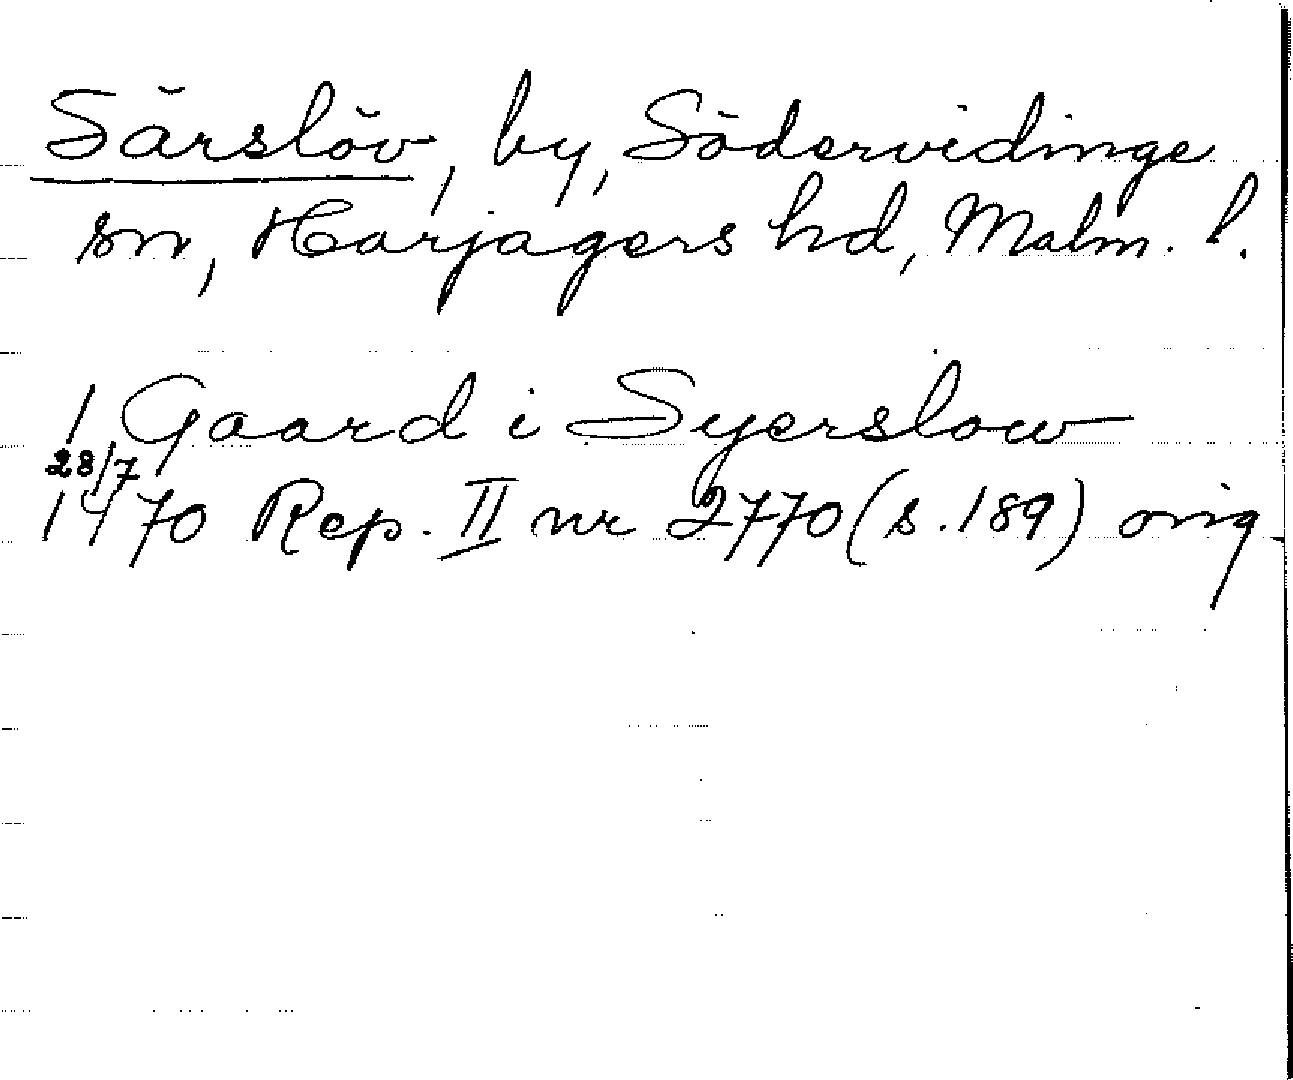 Särslöv, by, Södervidinge
sn, Harjagers hd, Malm. l.
1 Gaard i Syerslow
28/7
1470 Rep. II nr 2770 (s. 189) orig.